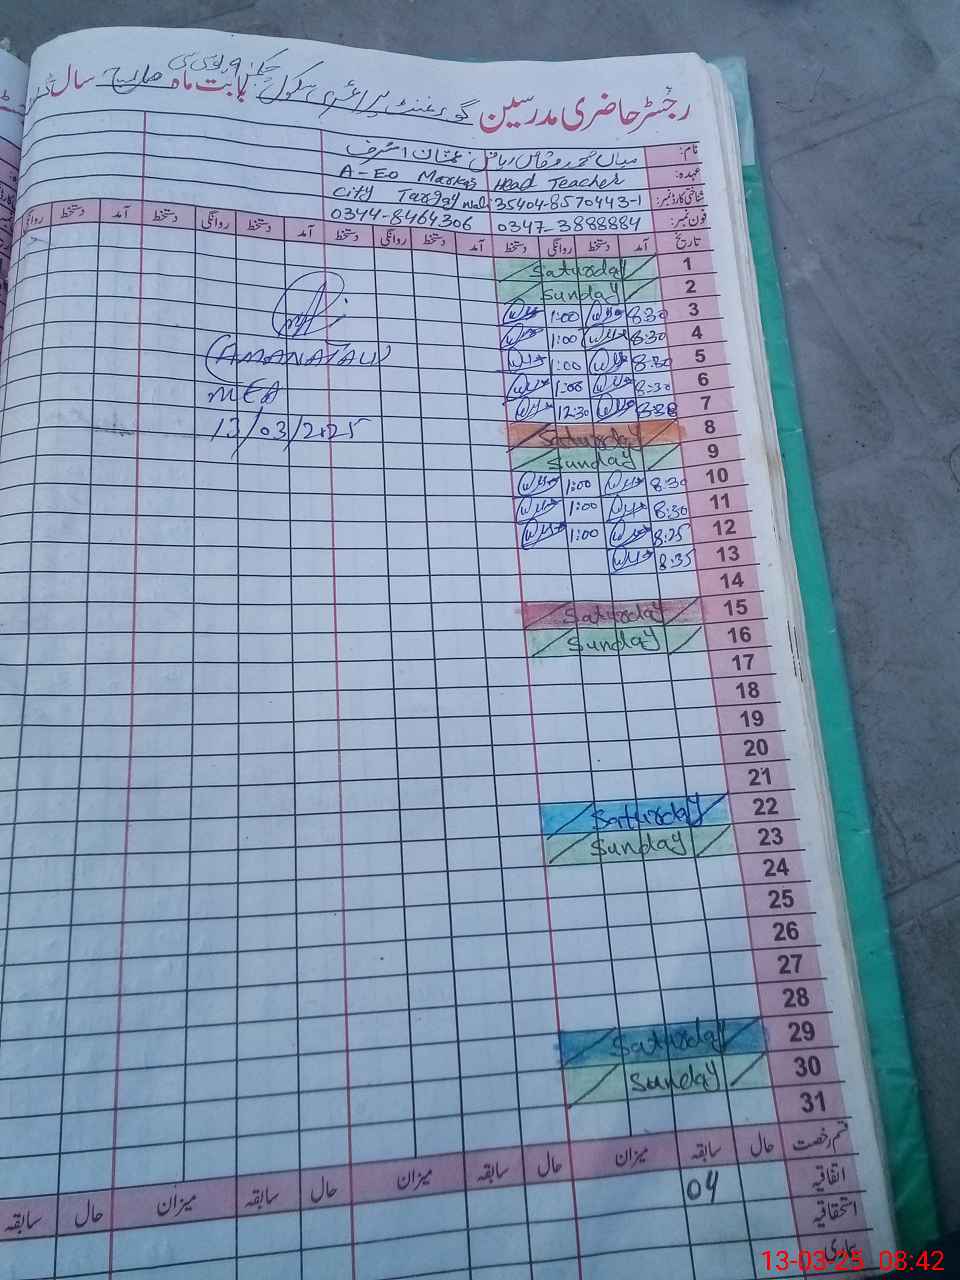 رجسٹر حاضری مدرسین گورنمنٹ پرائمری سکول بابت ماہ مارچ سال
نام:
عہدہ: Head Teacher A-EO Markaz
شناختی کارڈ نمبر: 35404-8570443-1 City
فون نمبر: 0347-3888884 0344-8464306
تاریخ آمد دستخط روانگی دستخط آمد دستخط روانگی دستخط آمد دستخط روانگی دستخط آمد دستخط روانگی
1 Saturday
2 Sunday
3 8:30 1:00
4 8:30 1:00
5 8:30 1:00
6 8:30 1:00
7 8:30 12:30
8 Saturday
9 Sunday
10 8:30 1:00
11 8:30 1:00
12 8:25 1:00
13 8:35
14
15 Saturday
16 Sunday
17
18
19
20
21
22 Saturday
23 Sunday
24
25
26
27
28
29 Saturday
30 Sunday
31
(AMANAT ALI)
MEA
13/03/2025
قسم رخصت حال سابقہ میزان حال سابقہ میزان حال سابقہ میزان حال سابقہ
اتفاقیہ 04
استحقاقیہ
بیماری
13-03-25 08:42